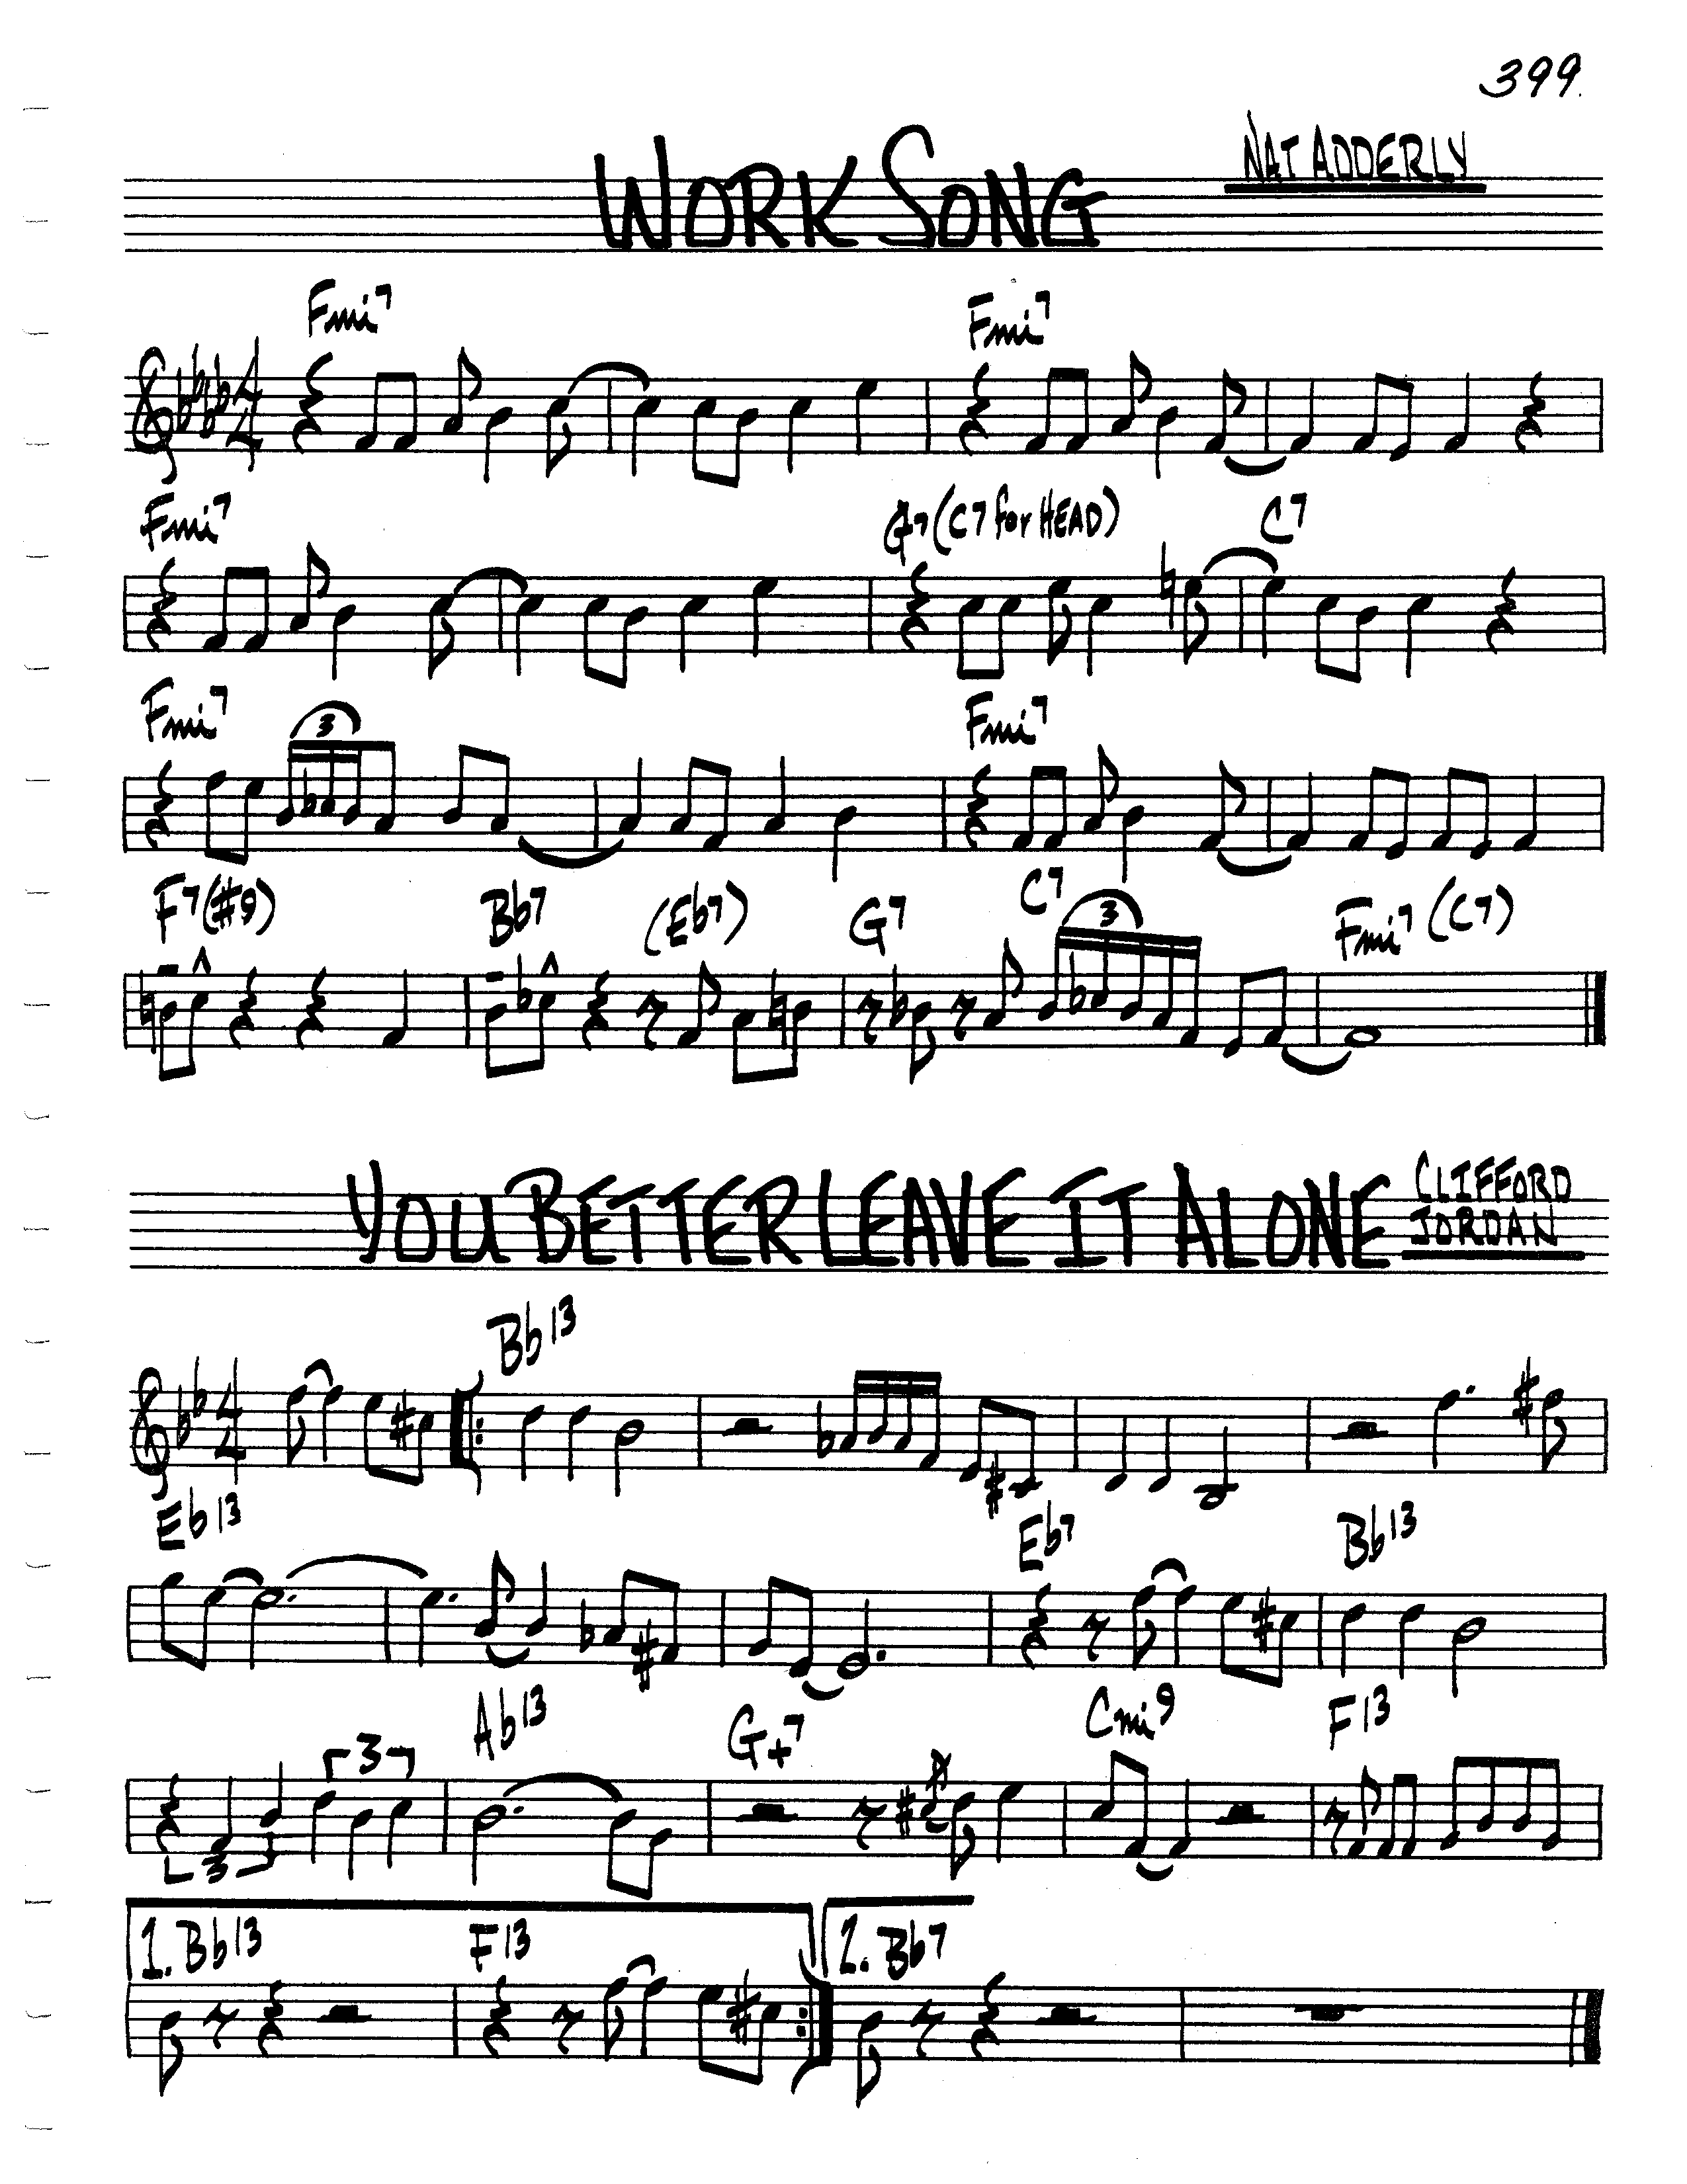 399.
WORK SONG
NAT ADDERLY
Fmi7 Fmi7
Fmi7 G7 (C7 for HEAD) C7
Fmi7 3 Fmi7
F7(#9) Bb7 (Eb7) G7 C7 3 Fmi7 (C7)
YOU BETTER LEAVE IT ALONE
CLIFFORD
JORDAN
Bb13
Eb13 Eb7 Bb13
3 3 Ab13 G+7 Cmi9 F13
1. Bb13 F13 2. Bb7